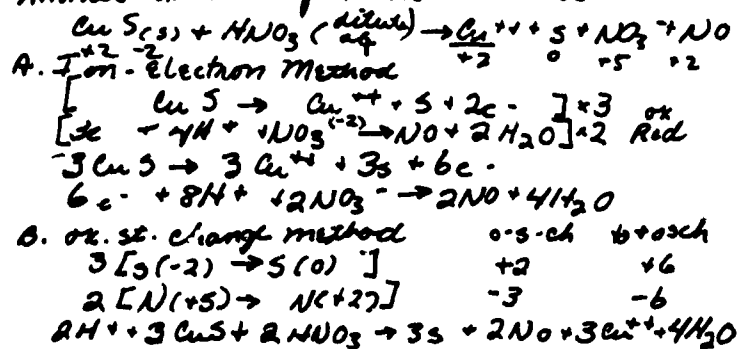 Cu S(s) + HNO3 (dilute) aq → Cu++ + S + NO3- + NO
+2 -2 +2 0 +5 +2
A. Ion-Electron Method
[ Cu S → Cu++ + S + 2e- ] x3 ox
[3e + 4H+ + NO3 (-2) → NO + 2 H2O] x2 Red
3 Cu S → 3 Cu++ + 3s + 6e-
6e- + 8H+ + 2NO3- → 2NO + 4H2O
B. ox. st. change method o-s-ch b+osch
3 [S(-2) → S(0)] +2 +6
2 [N(+5) → N(+2)] -3 -6
2H+ + 3 CuS + 2 HNO3 → 3s + 2No + 3Cu++ + 4H2O